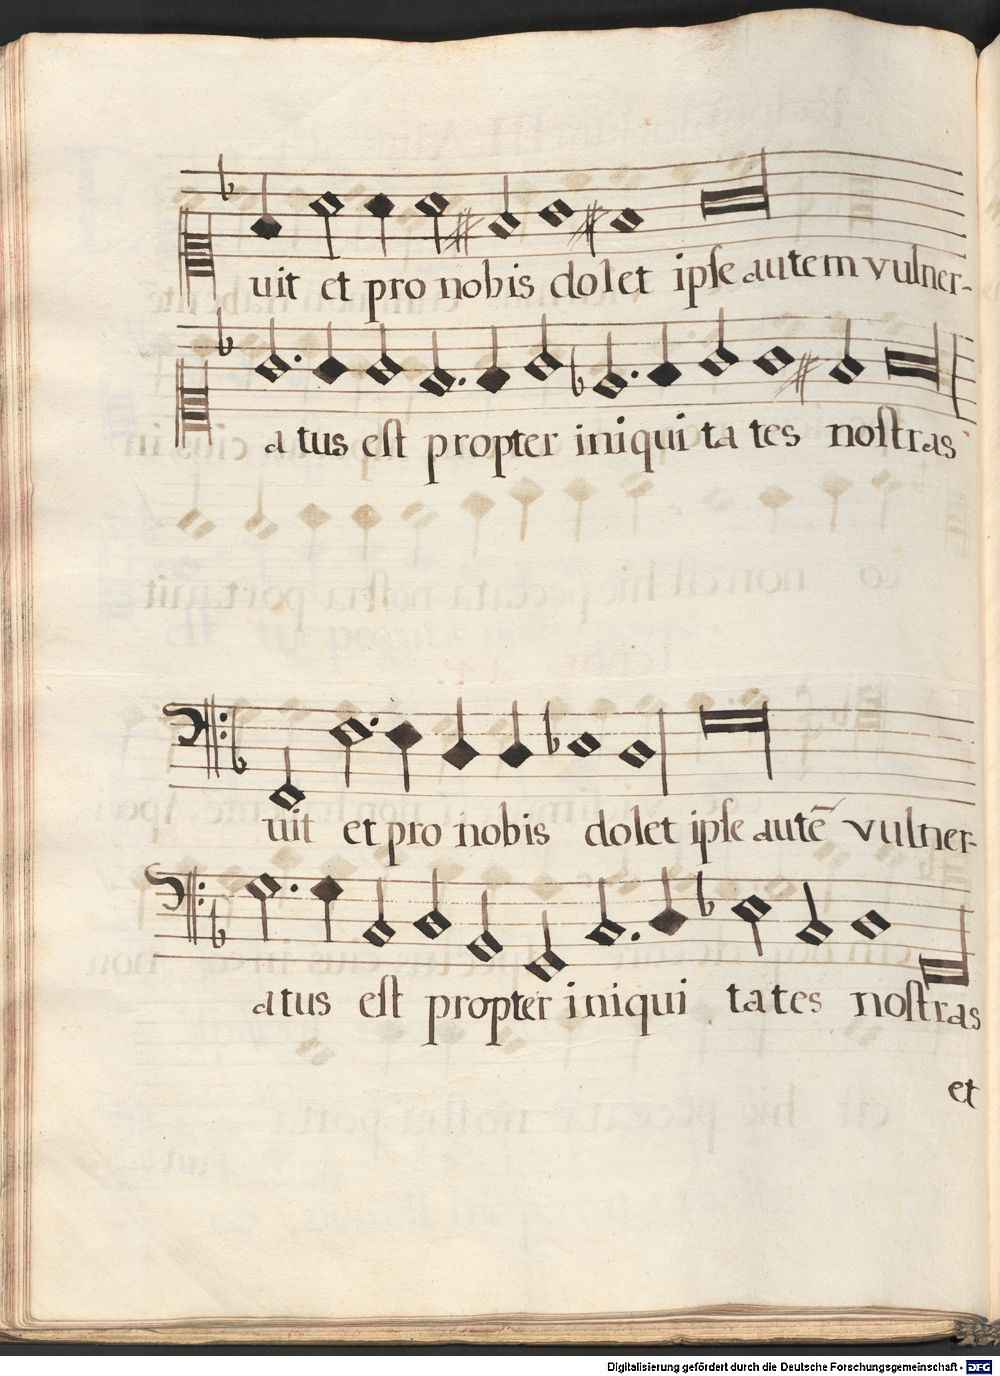 uit et pro nobis dolet ipſe autem vulner-
atus eſt propter iniqui ta tes noſtras
uit et pro nobis dolet ipſe autē vulner-
atus eſt propter iniqui tates noſtras
et
Digitalisierung gefördert durch die Deutsche Forschungsgemeinschaft - DFG